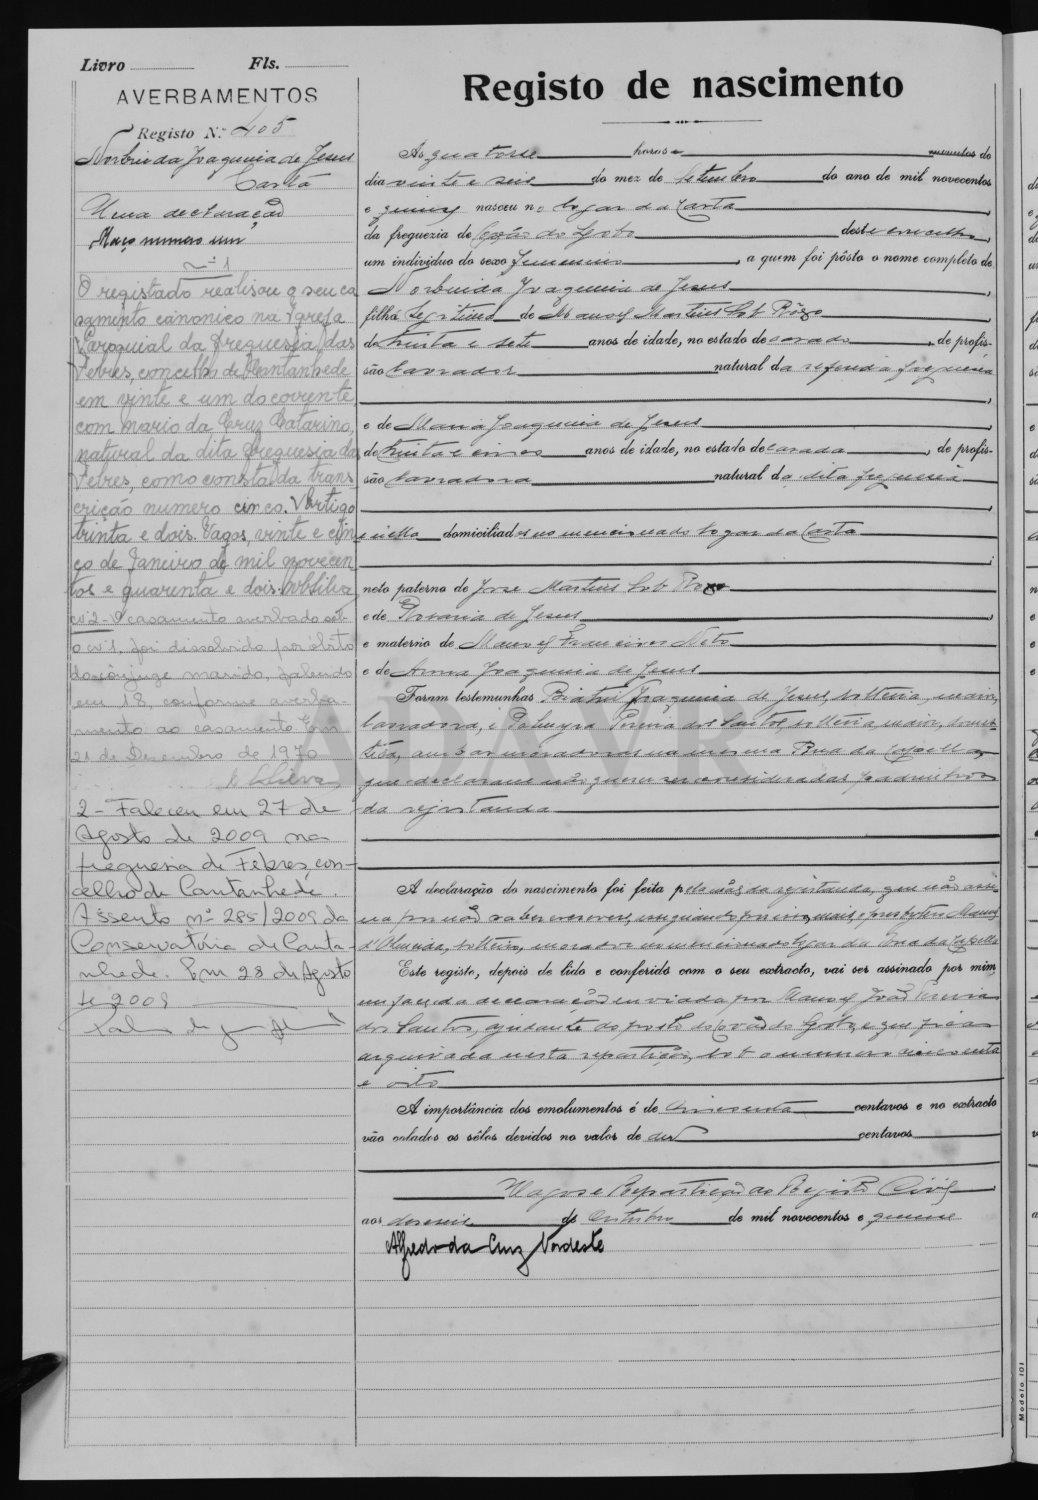 Livro Fls.
AVERBAMENTOS
Registo N.º 405
Norbinda Joaquina de Jesus
Cartá
Uma declaração
Março numero um
N.º 1
O registado realisou o seu ca
samento canonico na Igreja
Paroquial da freguesia das
Febres, concelho de Cantanhede
em vinte e um do corrente
com Mario da Cruz Catarino,
natural da dita freguesia das
Febres, como consta da trans
crição numero cinco. Artigo
trinta e dois. Vagos, vinte e cin
co de Janeiro de mil novecen
tos e quarenta e dois. Silva
nº2 - O casamento averbado sob
o nº1, foi dissolvido por óbito
do cônjuge marido, falecido
em 18, conforme averba-
mento ao casamento. Em
21 de Dezembro de 1970
Silva
2 - Faleceu em 27 de
Agosto de 2009 na
freguesia de Febres, con-
celho de Cantanhede.
Assento nº 285/2009 da
Conservatória de Canta-
nhede. Em 28 de Agosto
de 2009
Registo de nascimento
Às quatorse horas e minutos do
dia vinte e seis do mez de Setembro do ano de mil novecentos
e quinze nasceu no logar da Carta
da freguezia de Covão do Lobo deste concelho,
um individuo do sexo femenino, a quem foi pôsto o nome completo de
Norbinda Joaquina de Jesus
filha legitima de Manoel Martins
de trinta e sete anos de idade, no estado de casado, de profis-
são lavrador natural da referida freguesia
e de Maria Joaquina de Jesus
de trinta e cinco anos de idade, no estado de casada, de profis-
são lavradora natural da dita freguesia
e nella domiciliados no mencionado logar da Carta
neto paterno de Jose Martins
e de Rosaria de Jesus
e materno de Manoel Francisco Neto
e de Anna Joaquina de Jesus
Foram testemunhas Beatriz Joaquina de Jesus, solteira, maior,
lavradora, e Palmyra Pereira dos Santos, solteira, maior, domes-
tica, ambas moradoras na mesma Rua da Capella,
que declaram não querer ser consideradas padrinhos
da registanda
A declaração do nascimento foi feita pela mãe da registanda, que não assi-
na por não saber escrever, presbytero Manoel
d'Oliveira, solteiro, morador no mencionado logar da Rua da Capella
Este registo, depois de lido e conferido com o seu extracto, vai ser assinado por mim,
em face da declaração enviada por Manoel João Pereira
dos Santos, ajudante do posto do Covão do Lobo, e que fica
arquivada nesta repartição, sob o numero cincoenta
e oito
A importância dos emolumentos é de cincoenta centavos e no extracto
vão colados os sêlos devidos no valor de dez centavos
Vagos e Repartição do Registo Civil
aos deseseis de Outubro de mil novecentos e quinze
Alfredo da Cruz Nordeste
ADAVR
Modelo 101